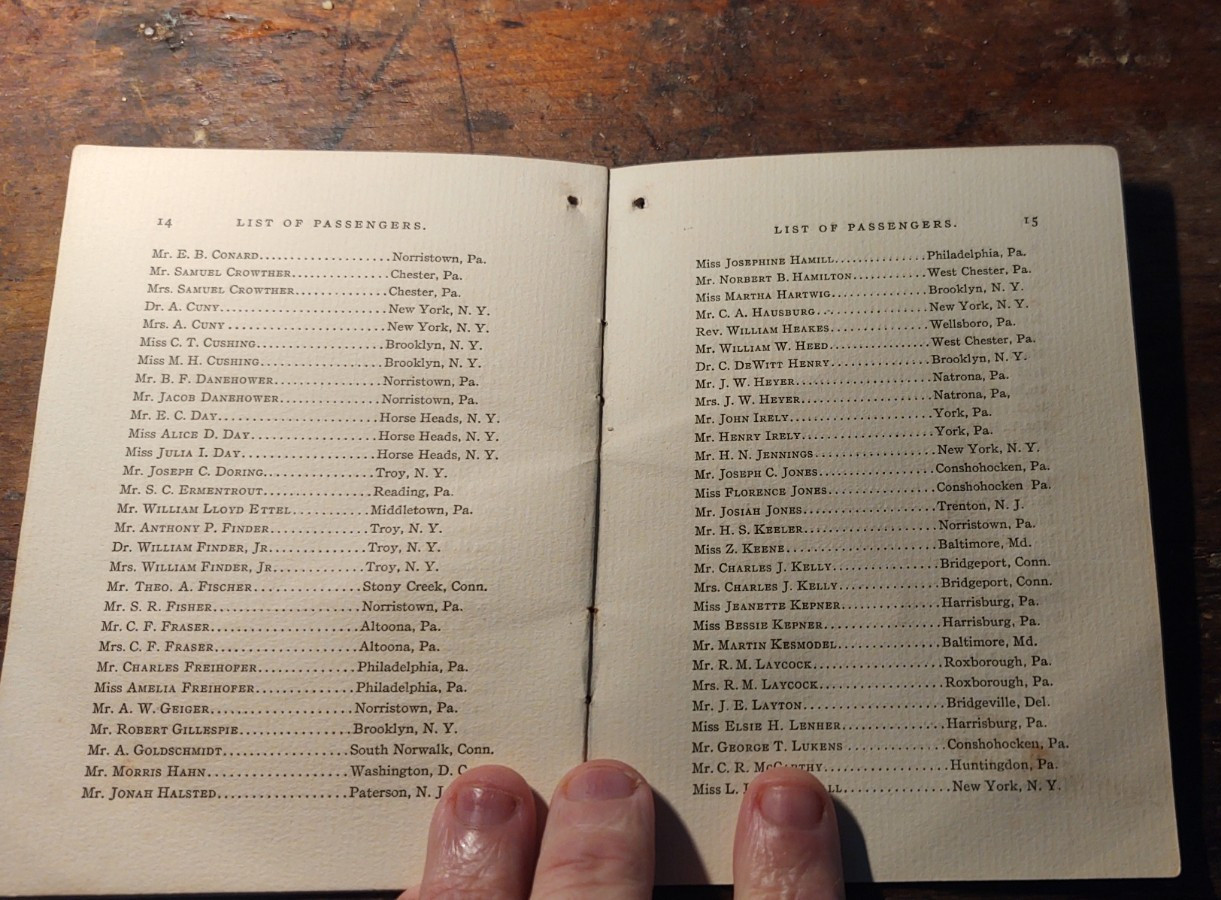 14 LIST OF PASSENGERS.
Mr. E. B. CONARD....................Norristown, Pa.
Mr. SAMUEL CROWTHER...............Chester, Pa.
Mrs. SAMUEL CROWTHER..............Chester, Pa.
Dr. A. CUNY..........................New York, N. Y.
Mrs. A. CUNY........................New York, N. Y.
Miss C. T. CUSHING....................Brooklyn, N. Y.
Miss M. H. CUSHING...................Brooklyn, N. Y.
Mr. B. F. DANEHOWER.................Norristown, Pa.
Mr. JACOB DANEHOWER................Norristown, Pa.
Mr. E. C. DAY.........................Horse Heads, N. Y.
Miss ALICE D. DAY....................Horse Heads, N. Y.
Miss JULIA I. DAY.....................Horse Heads, N. Y.
Mr. JOSEPH C. DORING.................Troy, N. Y.
Mr. S. C. ERMENTROUT.................Reading, Pa.
Mr. WILLIAM LLOYD ETTEL............Middletown, Pa.
Mr. ANTHONY P. FINDER...............Troy, N. Y.
Dr. WILLIAM FINDER, JR...............Troy, N. Y.
Mrs. WILLIAM FINDER, JR..............Troy, N. Y.
Mr. THEO. A. FISCHER.................Stony Creek, Conn.
Mr. S. R. FISHER......................Norristown, Pa.
Mr. C. F. FRASER......................Altoona, Pa.
Mrs. C. F. FRASER.....................Altoona, Pa.
Mr. CHARLES FREIHOFER...............Philadelphia, Pa.
Miss AMELIA FREIHOFER...............Philadelphia, Pa.
Mr. A. W. GEIGER......................Norristown, Pa.
Mr. ROBERT GILLESPIE.................Brooklyn, N. Y.
Mr. A. GOLDSCHMIDT..................South Norwalk, Conn.
Mr. MORRIS HAHN.....................Washington, D. C
Mr. JONAH HALSTED...................Paterson, N. J
LIST OF PASSENGERS. 15
Miss JOSEPHINE HAMILL..............Philadelphia, Pa.
Mr. NORBERT B. HAMILTON...........West Chester, Pa.
Miss MARTHA HARTWIG..............Brooklyn, N. Y.
Mr. C. A. HAUSBURG.................New York, N. Y.
Rev. WILLIAM HEAKES...............Wellsboro, Pa.
Mr. WILLIAM W. HEED...............West Chester, Pa.
Dr. C. DEWITT HENRY................Brooklyn, N. Y.
Mr. J. W. HEYER.....................Natrona, Pa.
Mrs. J. W. HEYER....................Natrona, Pa,
Mr. JOHN IRELY......................York, Pa.
Mr. HENRY IRELY....................York, Pa.
Mr. H. N. JENNINGS..................New York, N. Y.
Mr. JOSEPH C. JONES.................Conshohocken, Pa.
Miss FLORENCE JONES................Conshohocken Pa.
Mr. JOSIAH JONES....................Trenton, N. J.
Mr. H. S. KEELER....................Norristown, Pa.
Miss Z. KEENE.......................Baltimore, Md.
Mr. CHARLES J. KELLY................Bridgeport, Conn.
Mrs. CHARLES J. KELLY...............Bridgeport, Conn.
Miss JEANETTE KEPNER...............Harrisburg, Pa.
Miss BESSIE KEPNER..................Harrisburg, Pa.
Mr. MARTIN KESMODEL...............Baltimore, Md.
Mr. R. M. LAYCOCK...................Roxborough, Pa.
Mrs. R. M. LAYCOCK..................Roxborough, Pa.
Mr. J. E. LAYTON.....................Bridgeville, Del.
Miss ELSIE H. LENHER................Harrisburg, Pa.
Mr. GEORGE T. LUKENS...............Conshohocken, Pa.
Mr. C. R. MCCARTHY..................Huntingdon, Pa.
Miss L. ................New York, N. Y.